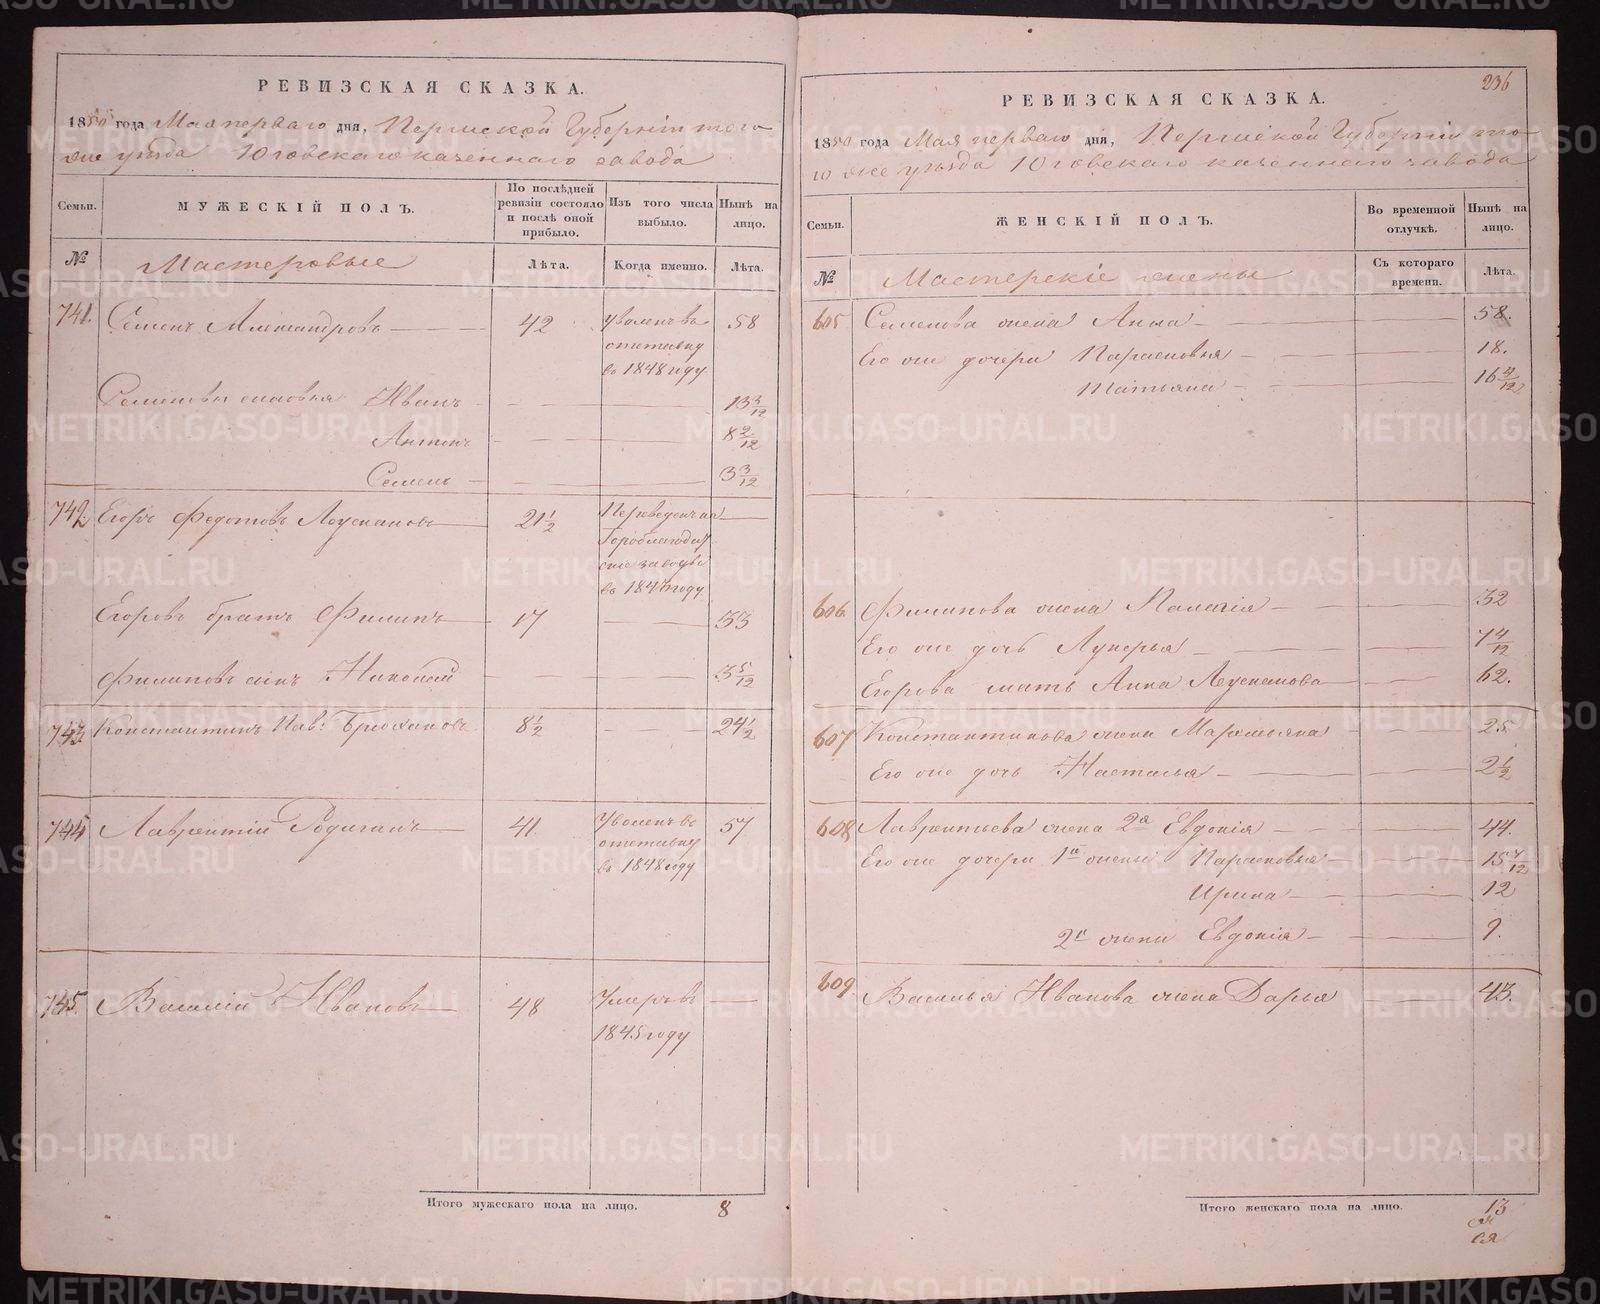 РЕВИЗСКАЯ СКАЗКА.
1850 года Мая перваго дня, Пермской Губерніи того
же уѣзда Юговскаго казеннаго завода
Семьи.
МУЖЕСКІЙ ПОЛЪ.
По послѣдней
ревизіи состояло
и послѣ оной
прибыло.
Изъ того числа
выбыло.
Нынѣ на
лицо.
№
Мастеровые
Лѣта.
Когда именно.
Лѣта.
741. Семенъ Александровъ 42 уволенъ въ 58
отставку
въ 1848 году
Семеновы сыновья Иванъ 13 3/12
Антонъ 8 2/12
Семенъ 3 3/12
742 Егоръ Федотовъ 21 1/2 Переведенъ на
Гороблагодат
ские заводы
въ 1847 году
Егоровъ братъ Филипъ 17 33
Филиповъ сынъ Николай 3 5/12
743 Константинъ Пав: Брюхановъ 8 1/2 24 1/2
744 Лаврентій Родигинъ 41. Уволенъ въ 57
отставку
въ 1848 году
745. Василій Ивановъ 48 Умеръ въ
1845 году
Итого мужескаго пола на лицо. 8
236
РЕВИЗСКАЯ СКАЗКА.
1850 года Мая перваго дня, Пермской Губерніи то
го же уѣзда Юговскаго казеннаго завода
Семьи.
ЖЕНСКІЙ ПОЛЪ.
Во временной
отлучкѣ.
Нынѣ на
лицо.
№
Мастерскіе жены
Съ котораго
времени.
Лѣта.
605 Семенова жена Анна 58.
Его же дочери Парасковья 18.
Татьяна 16 4/12
606 Филипова жена Палагія 32
Его же дочь Лукерья 7 4/12
Егорова мать Анна 62.
607 Константинова жена Маремьяна 25
Его же дочь Настасья 2 1/2
608 Лаврентьева жена 2я Евдокія 44.
Его же дочери 1й жены Парасковья 15 7/12
Ирина 12
2й жены Евдокія 9.
609. Василья Иванова жена Дарья 43.
Итого женскаго пола на лицо. 13